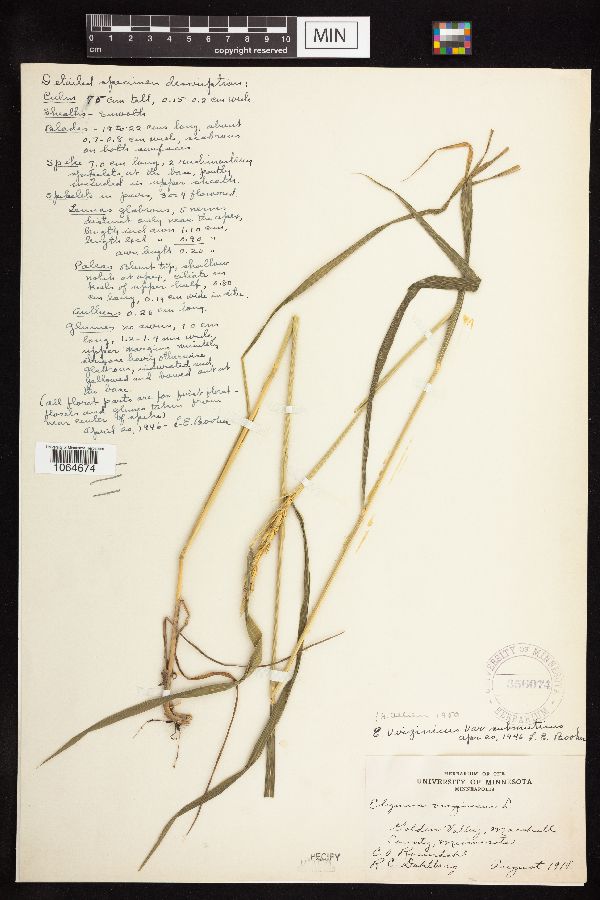 0 1 2 3 4 5 6 7 8 9 10
cm
copyright reserved
MIN
Detailed specimen description:
Culm 75 cm tall, 0.15-0.2 cm wide
Sheaths - Smooth
Blades - 18 to 22 cms long, about
0.7-0.8 cm wide, scabrous
on both surfaces
Spike 7.0 cm long, 2 rudimentary
spikelets at the base, partly
included in upper sheath.
Spikelets in pairs, 3 or 4 flowered.
Lemmas glabrous, 5 nerves
distinct only near the apex,
length incl awn 1.10 cm,
length excl " 0.90 "
awn length 0.20 "
Paleas blunt tip, shallow
notch at apex, ciliate on
keels of upper half, 0.80
cm long, 0.19 cm wide
Anthers 0.26 cm long.
Glumes no awns, 1.0 cm
long, 1.2-1.4 mm wide,
upper margins minutely
otherwise
glabrous, indurated and
yellowed and bowed out at
the base.
(all floret parts are for first floret -
florets and glumes taken from
near center of spike)
April 20, 1946 - E. Booher
University of Minnesota Herbarium
1064674
UNIVERSITY OF MINNESOTA
356074
HERBARIUM
1950
E virginicus var submuticus
Apr 20, 1946 E. Booher
HERBARIUM OF THE
UNIVERSITY OF MINNESOTA
MINNEAPOLIS
Elymus virginicus L
Golden Valley, Marshall
County, Minnesota
C O Rosendahl
R C Dahlberg August 191
PECIFY